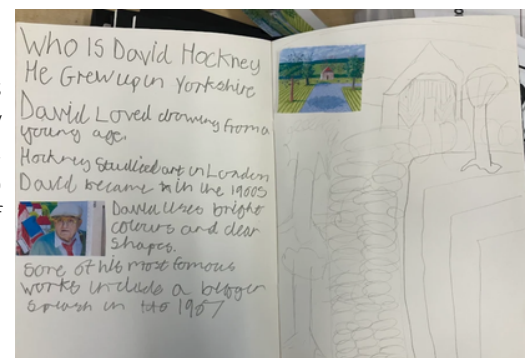 Who Is David Hockney
He Grew up in Yorkshire
David Loved drowing from a
young age.
Hockney Studied art in London
David became in the 1900s
David Uses bright
colours and clear
Shapes.
Sore of his most famous
works include a bigger
Splash in the 1967